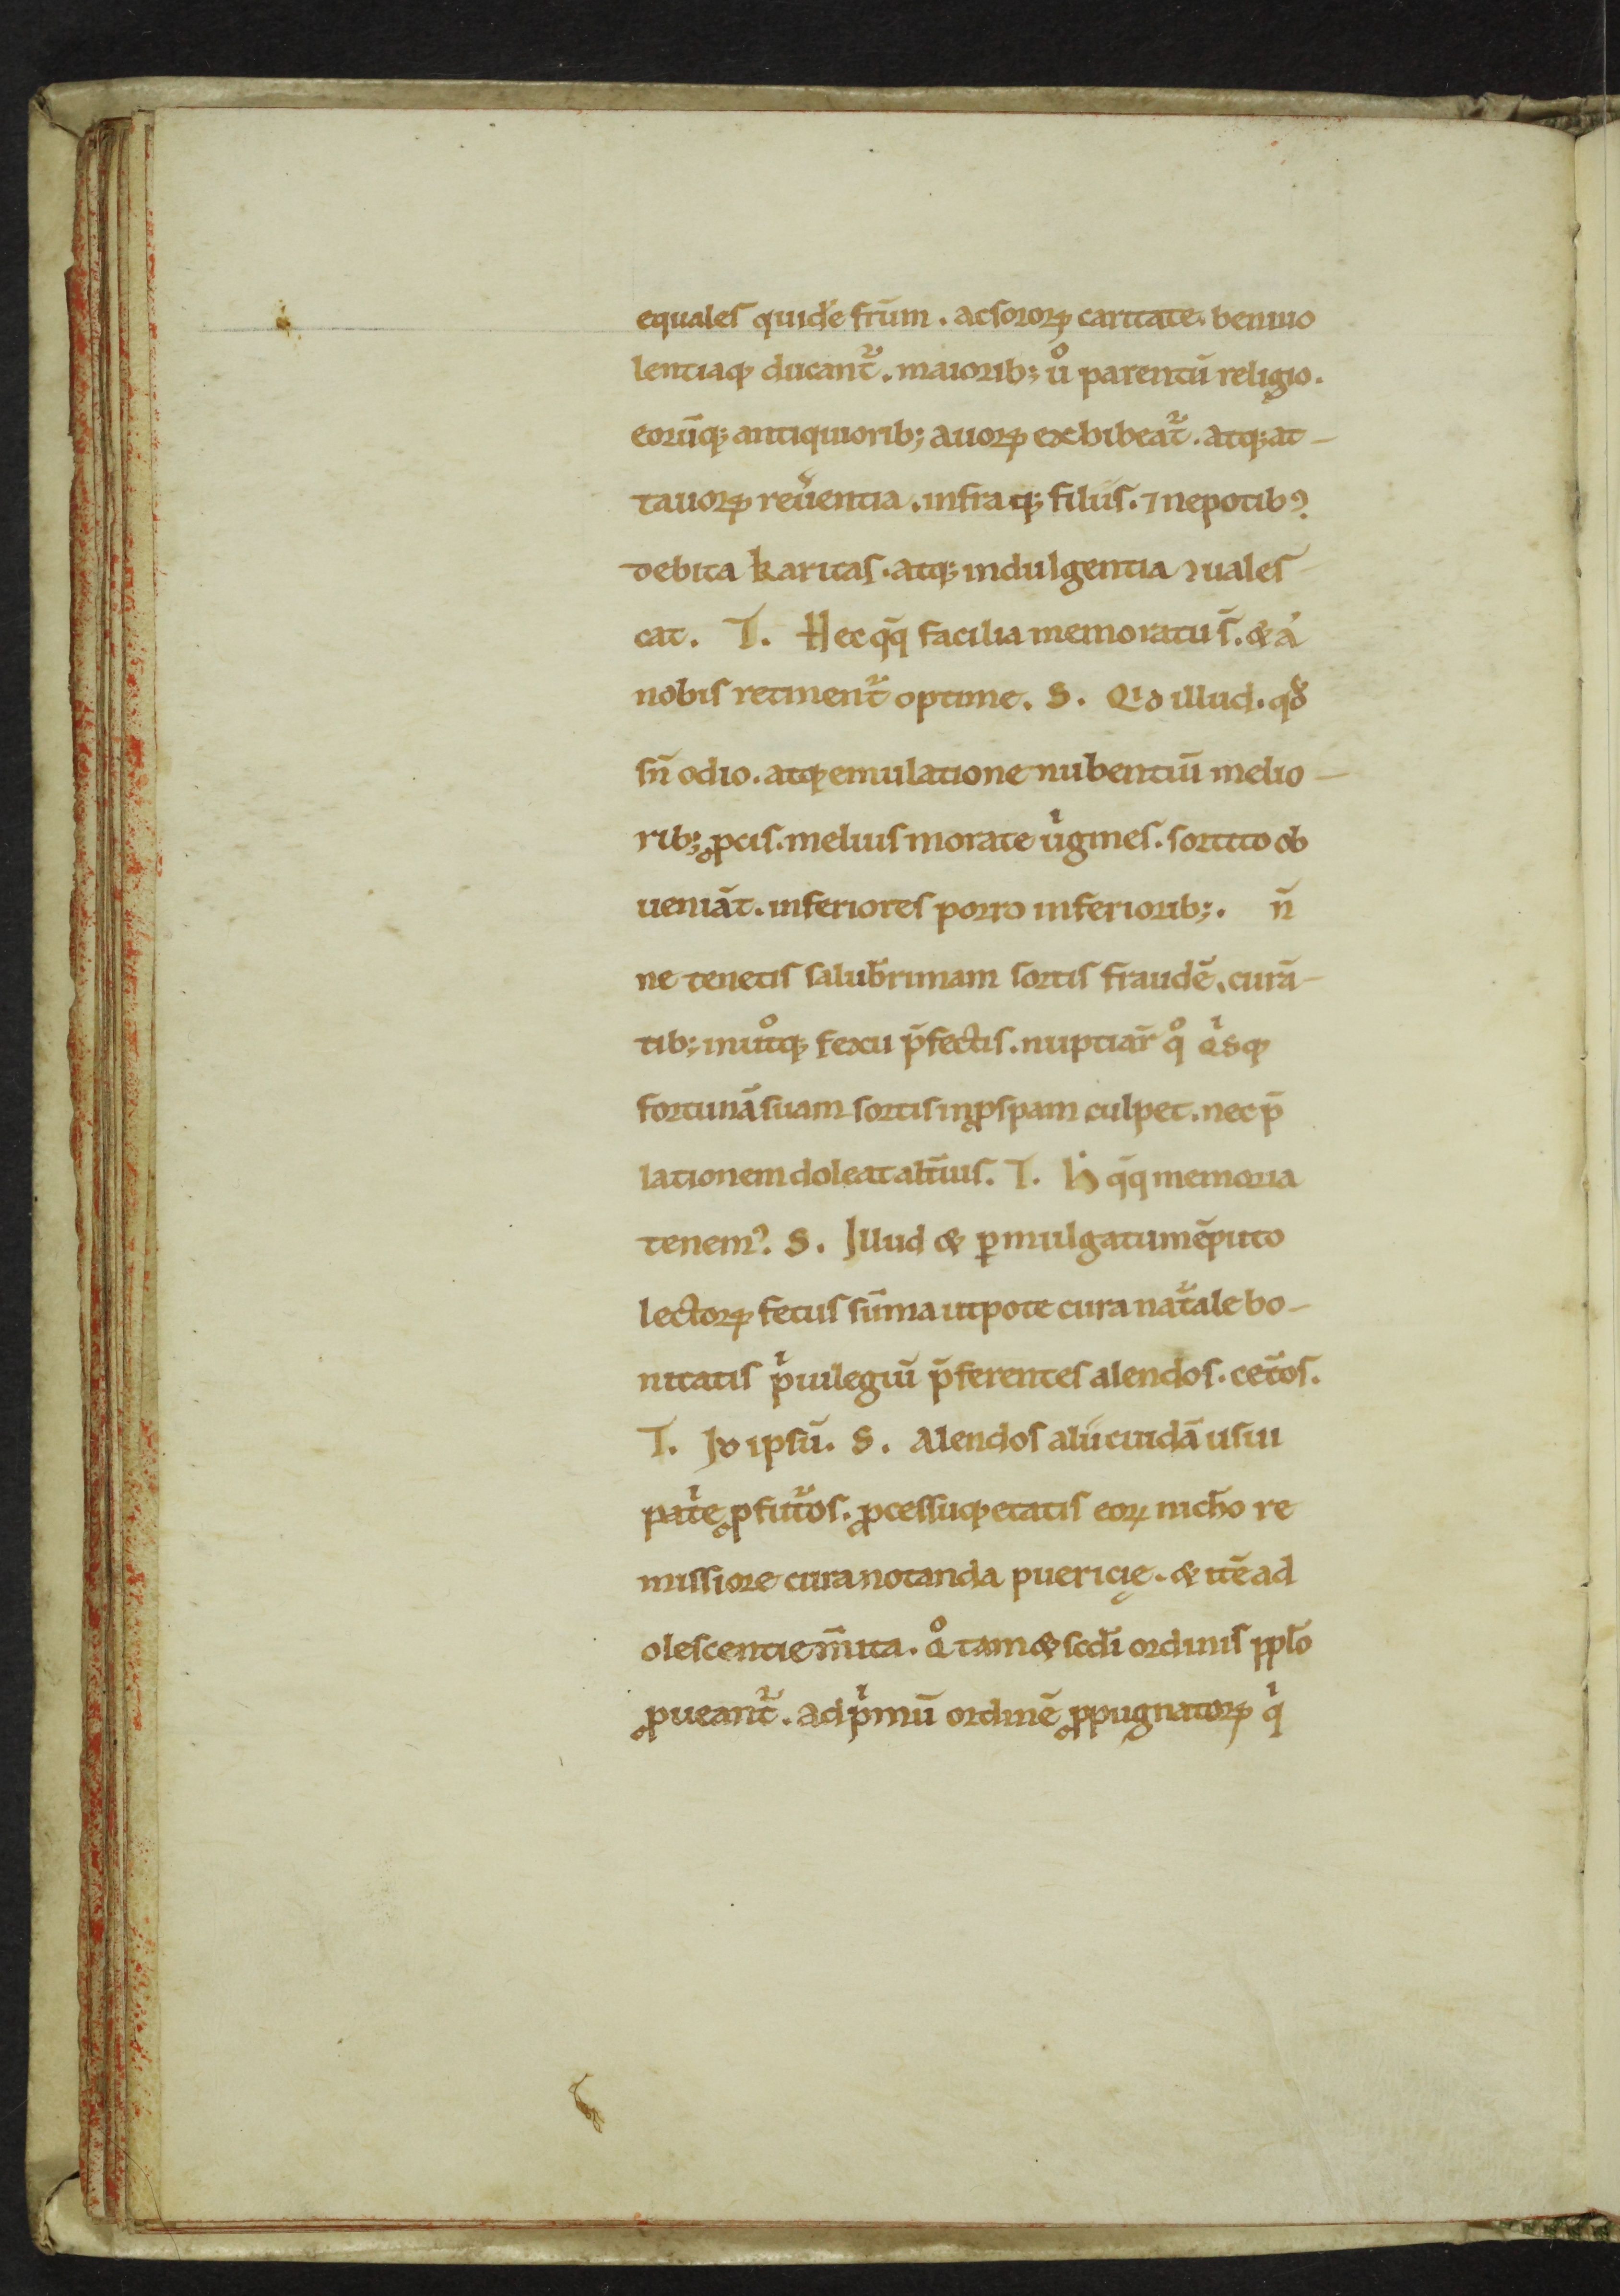 equales quidē fr̄um . ac soroꝝ caritate . beniuo
lentiaqꝫ ducant᷑ . maiorib; uͦ parentū religio .
eorūqꝫ antiquiorib; auoꝝ exhibeat᷑ . atqꝫ at-
tauoꝝ reu̾entia . infraqꝫ filiis . ⁊ nepotibꝰ
debita karitas . atqꝫ indulgentia ꝯuales
cat . T . Hec qq̄ facilia memoratu s̄ . & a
nobis retinent᷑ optime . S . Qid illud . qd̄
sn̄ odio . atqꝫ emulatione nubentiū melio-
rib; ꝓcis . melius morate uͥgines . sortito ob
ueniāt . inferiores porro inferiorib; . n̄
ne tenetis salub̄rimam sortis fraudē . curā-
tib; inutͦqꝫ sexu p̄fectis . nuptiaꝝ qͦ qͥsqꝫ
fortunā suam sortis inꝓspam culpet . nec p̄
lationem doleat alt̄ius . T . h̾ qq̄ memoria
tenemꝰ . S . Illud & ꝓmulgatum ē puto
lectoꝝ fetus sūma utpote cura nat᷑ale bo-
nitatis pͥuilegiū p̄ferentes alendos . cet̄os .
T . Id ipsū . S . Alendos alii cuidā usiu
patͥe ꝓfut᷑os . ꝓcessuqꝫ etatis eoꝝ nich̄o re
missiore cura notanda puericię . & itē ad
olescentie m̄ita . qͦ tam & scd̄i ordinis ppl̄o
ꝓueant᷑ . ad pͥmū ordinē ꝓpugnatoꝝ qͥ